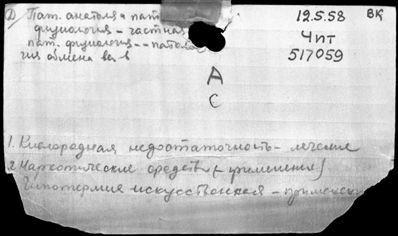 Пат. анатом. и пат.
физиология - частная
пат. физиология - - патоло
гия обмена вв в
12.5.58 ВК
Чпт
517059
А
С
1. Кислородная недостаточность - лечение
2. Наркотические средств (- применение)
Гипотермия искусственная - применен